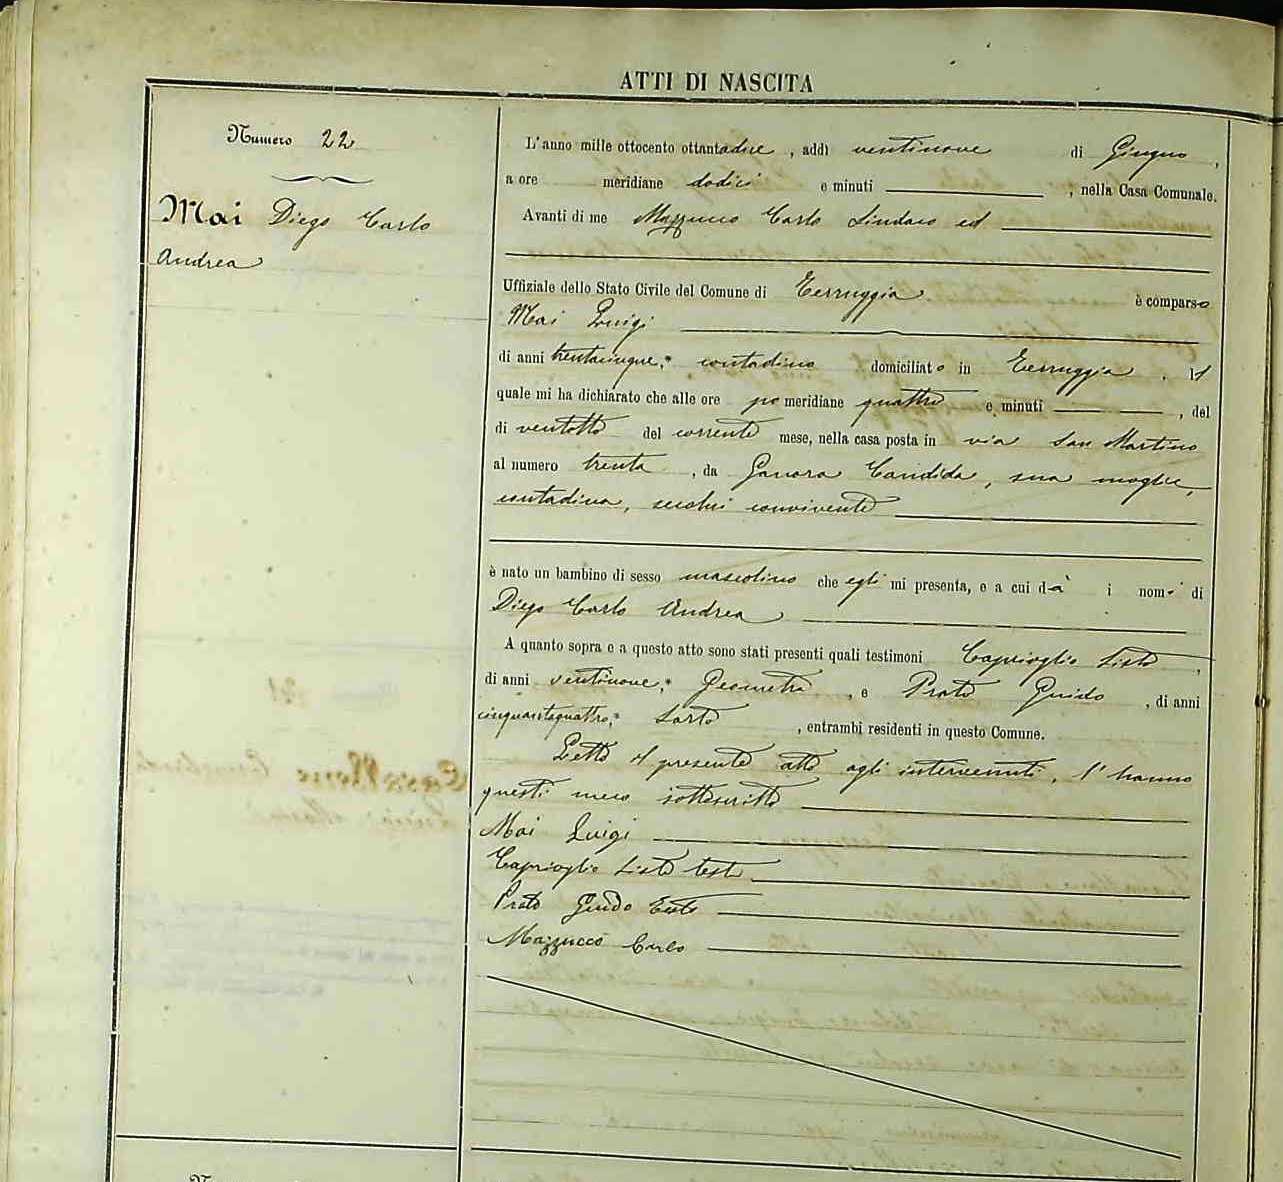 ATTI DI NASCITA
Numero 22
Mai Diego Carlo
Andrea
L'anno mille ottocento ottantadue, addì ventinove di Giugno,
a ore meridiane dodici e minuti, nella Casa Comunale.
Avanti di me Mazzucco Carlo Sindaco ed
Uffiziale dello Stato Civile del Comune di Terruggia è comparso
Mai Luigi
di anni trentacinque, contadino domiciliato in Terruggia, il
quale mi ha dichiarato che alle ore pomeridiane quattro e minuti, del
dì ventotto del corrente mese, nella casa posta in via San Martino
al numero trenta, da Ganora Candida, sua moglie,
contadina, secolui convivente
è nato un bambino di sesso mascolino che egli mi presenta, e a cui dà i nomi di
Diego Carlo Andrea
A quanto sopra e a questo atto sono stati presenti quali testimoni Caprioglio Sisto,
di anni ventinove, Geometra, e Prato Guido, di anni
cinquantaquattro, Sarto, entrambi residenti in questo Comune.
Letto il presente atto agli intervenuti, l'hanno
questi meco sottoscritto
Mai Luigi
Caprioglio Sisto teste
Prato Guido Teste
Mazzucco Carlo